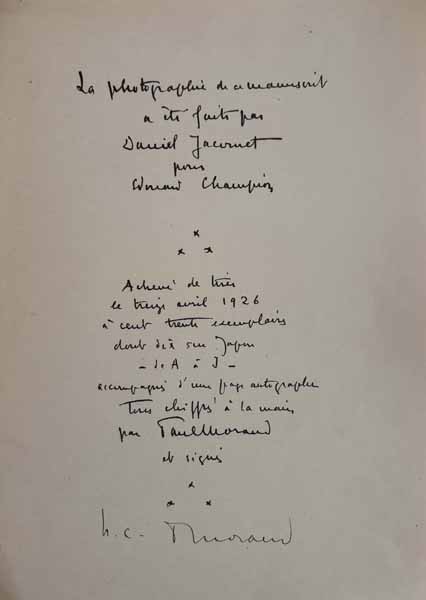 La photographie de ce manuscrit
a été faite par
Daniel Jacomet
pour
Edouard Champion
* * *
Achevé de tirer
le treize avril 1926
à cent trente exemplaires
dont dix sur Japon
- de A à J -
accompagnés d'une page autographe
Tous chiffrés à la main
par Paul Morand
et signés
* * *
h.c. PMorand